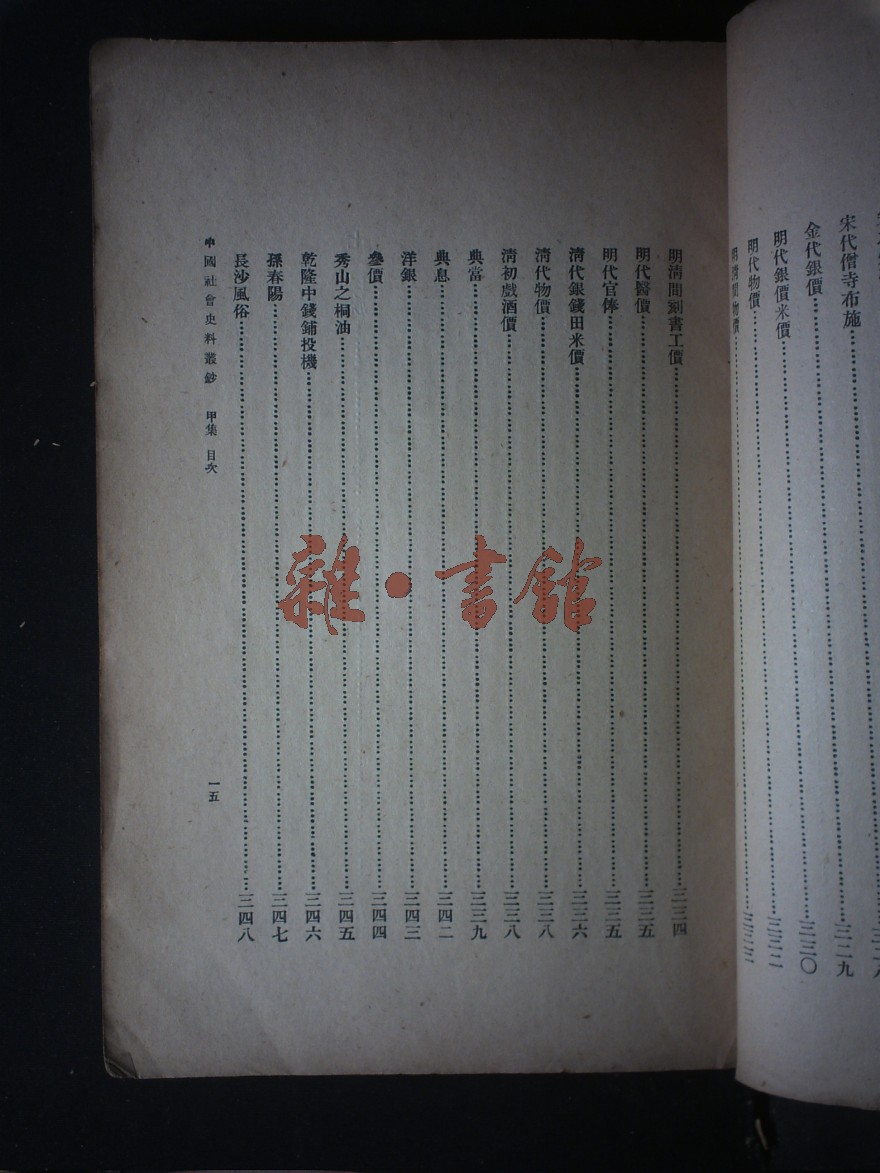 宋代僧寺布施……三二九
金代銀價……三三〇
明代銀價米價……三三二
明代物價……三三三
明清間物價
明清間刻書工價……三三四
明代醫價……三三五
明代官俸……三三五
清代銀錢田米價……三三六
清代物價……三三八
清初戲酒價……三三八
典當……三三九
典息……三四二
洋銀……三四三
參價……三四四
秀山之桐油……三四五
乾隆中錢鋪投機……三四六
孫春陽……三四七
長沙風俗……三四八
中國社會史料叢鈔 甲集 目次 一五
雜·書館